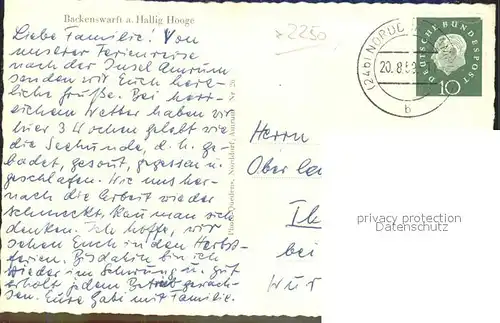 Backenswarft a. Hallig Hooge
Liebe Familie! Von
unserer Ferienreise
nach der Insel Amrum
senden wir Euch herz-
liche Grüße. Bei herr-
lichem Wetter haben wir
hier 3 Wochen gelebt wie
die Seehunde, d. h. ge-
badet, gesonnt, gegessen u.
geschlafen. Wie uns her-
nach die Arbeit wieder
schmeckt, kann man sich
denken. Ich hoffe, wir
sehen Euch in den Herbst-
ferien. Bis dahin bin ich
wieder im Schwung u. gut
erholt jedem Betrieb gewach-
sen. Eure Gabi mit Familie.
Photo Quedens, Norddorf, Amrum Nr. 26
2250
(24b) NORDD
20.8.59
b
DEUTSCHE BUNDESPOST
10
Herrn
Ober
bei
privacy protection
Datenschutz